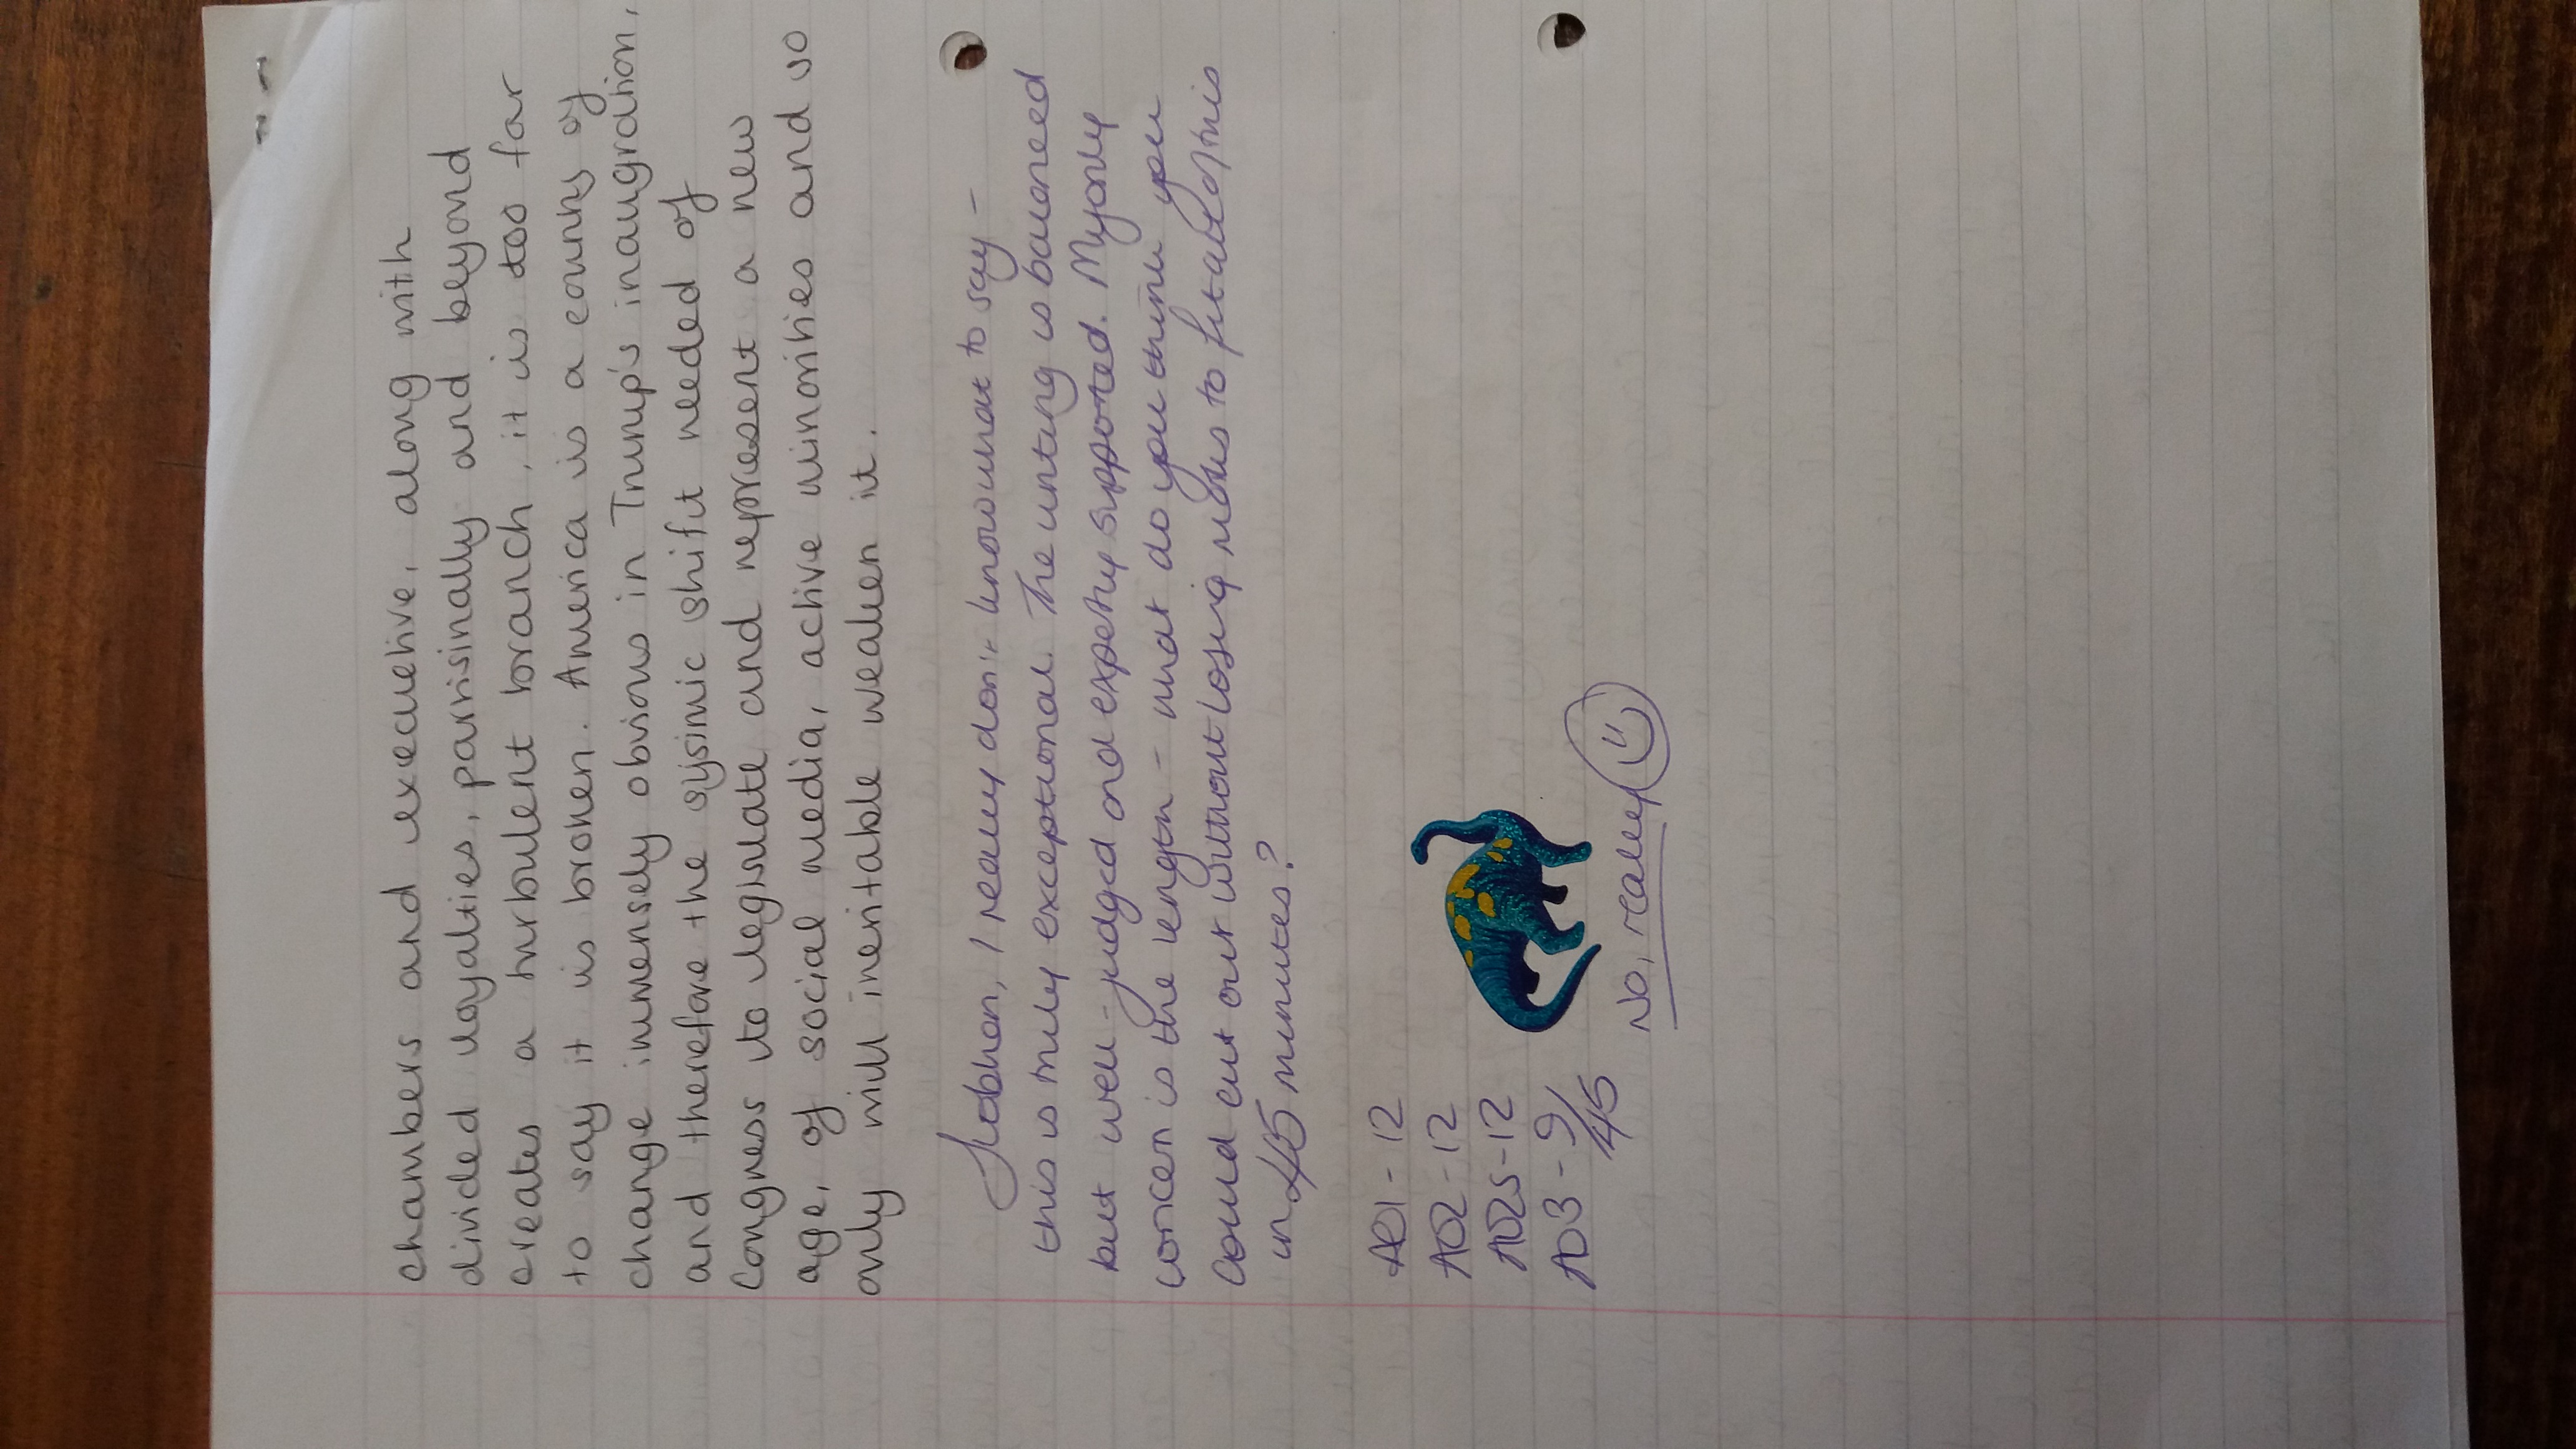 chambers and executive, along with
divided loyalties, parisinally and beyond
creates a turbulent branch, it is too far
to say it is broken. America is a country of
change immensely obvious in Trump's inaugration,
and therefore the sysimic shift needed of
Congress to legislate and represent a new
age, of social media, active minorities and so
only will ineritable weaken it.
Siobhan, I really don't know what to say -
this is truly exceptional. The writing is balanced
but well-judged and expertly supported. My only
concern is the length - what do you think you
could cut out without losing marks to fit all of this
in 45 minutes?
AO1 - 12
AO2 - 12
AO2S - 12
AO3 - 9
45
No, really